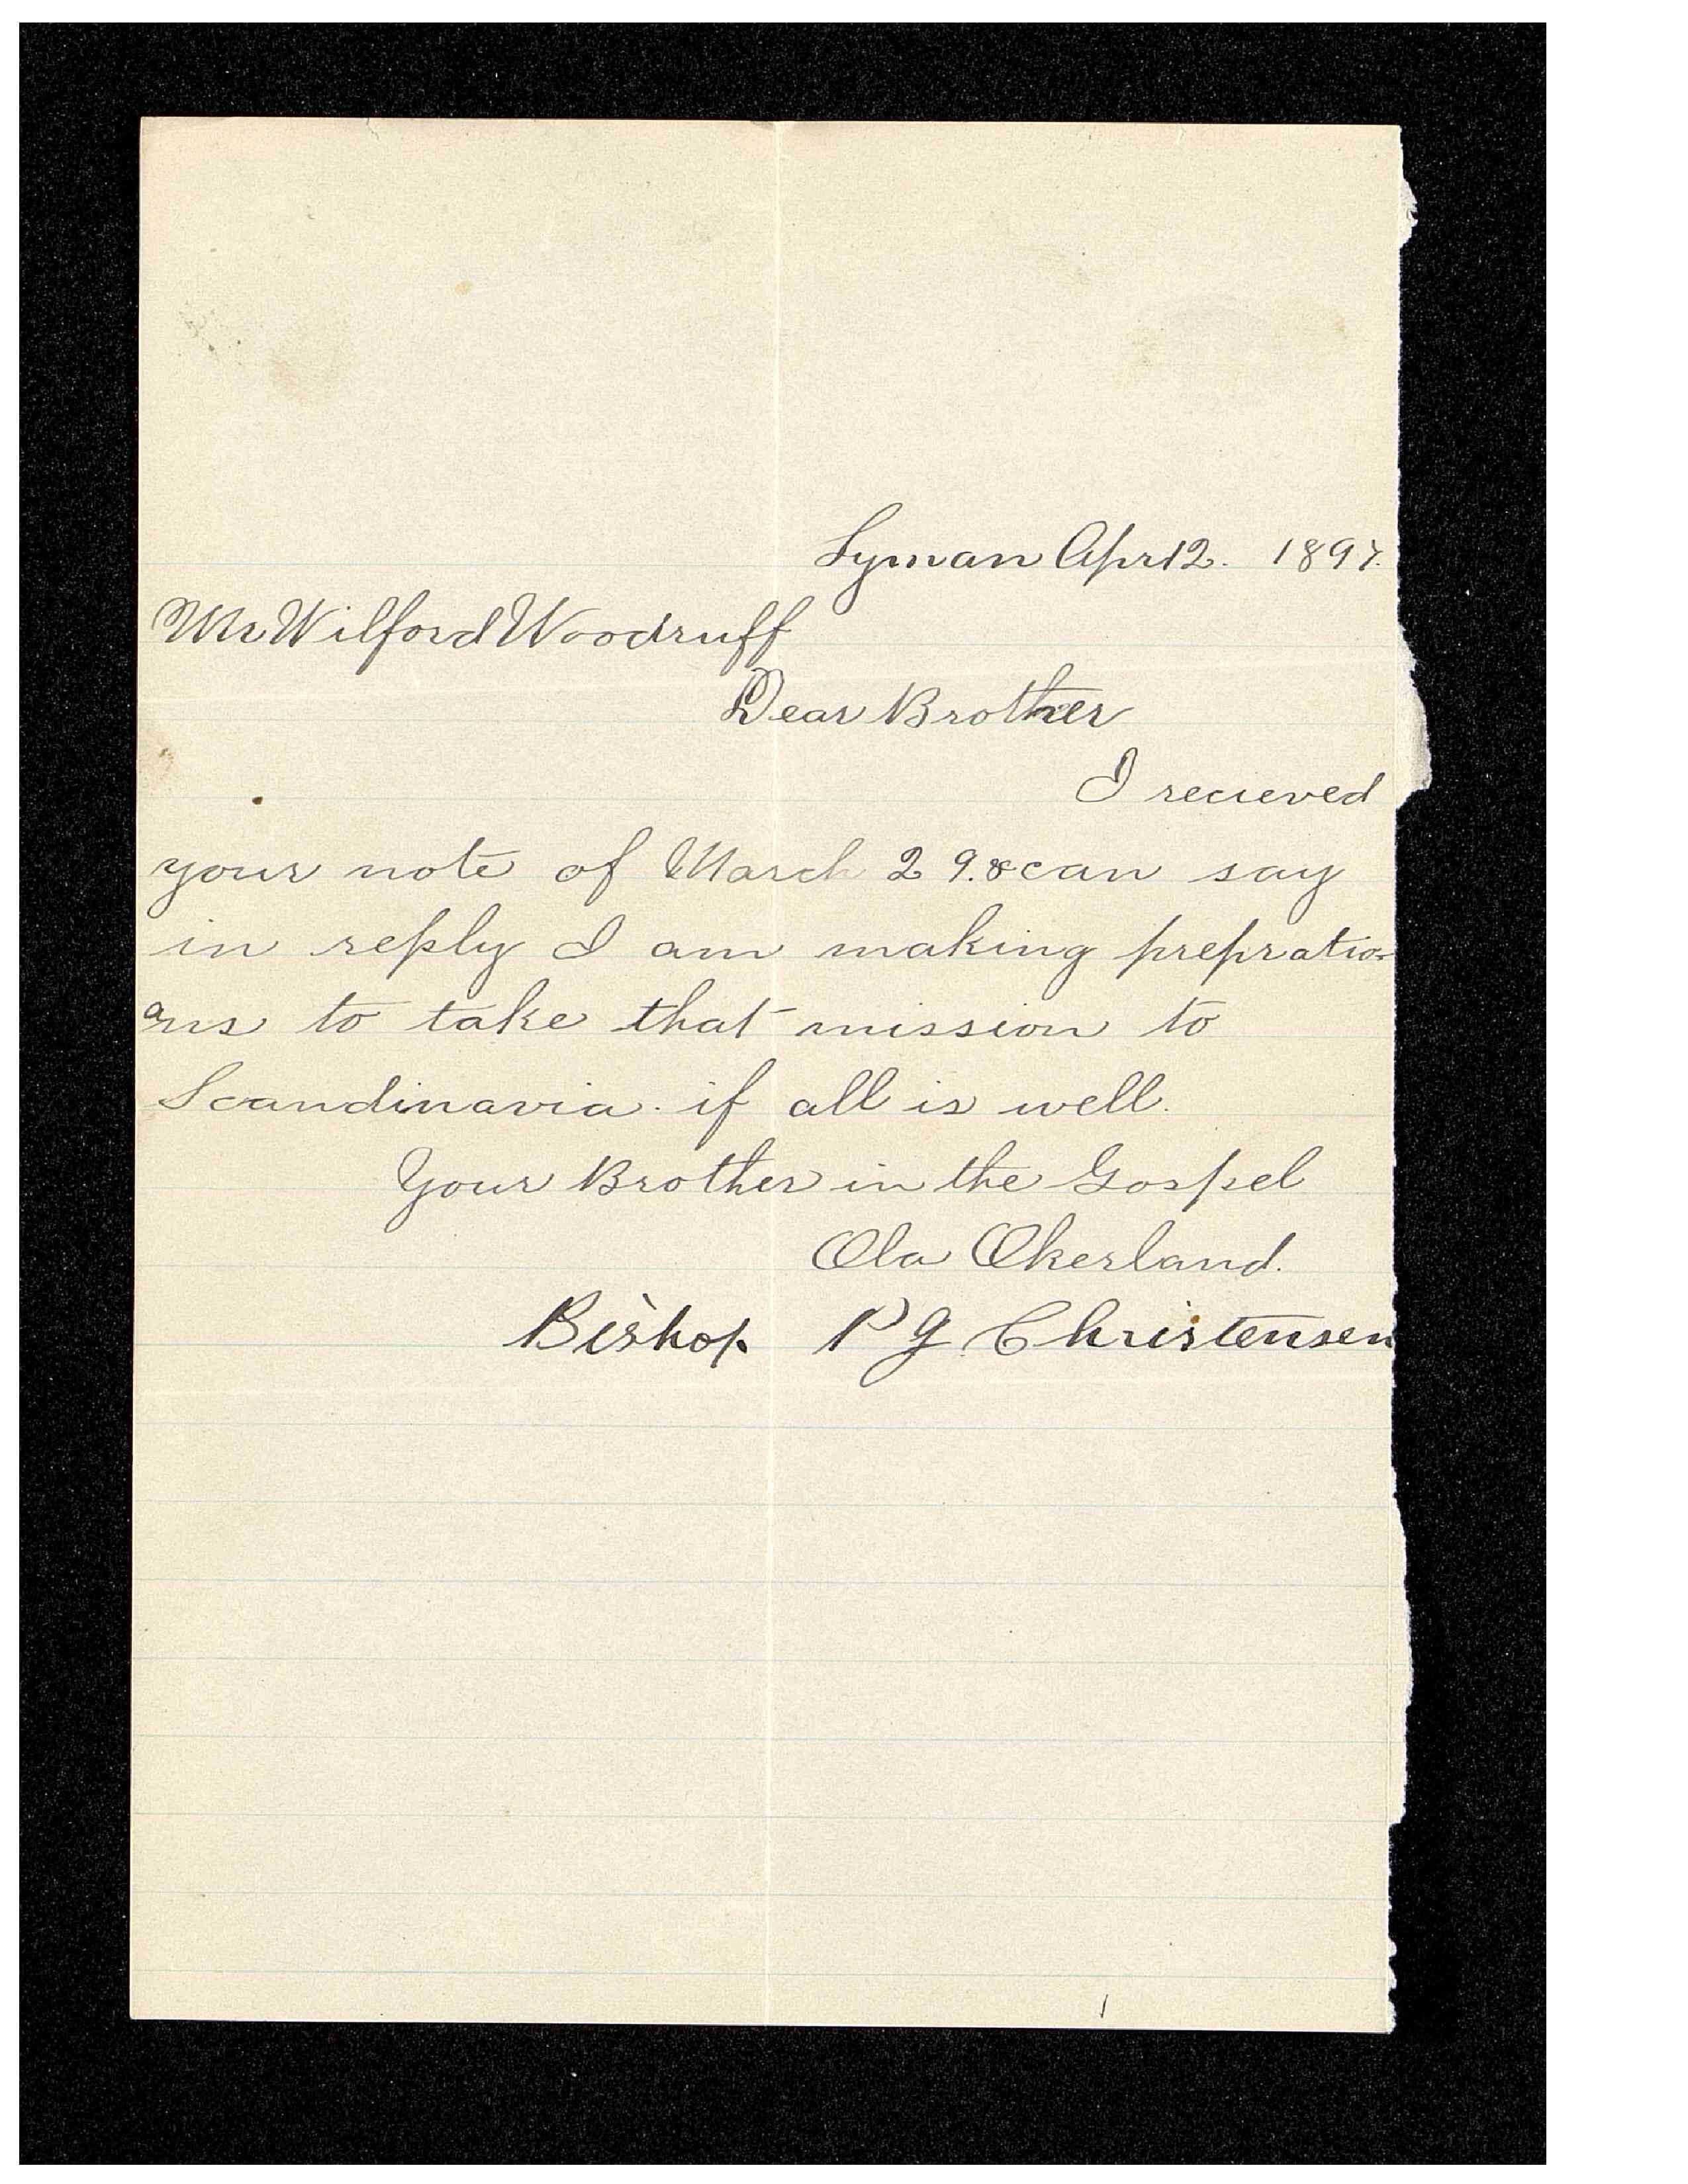 Lyman Apr 12. 1897.
Mr Wilford Woodruff
Dear Brother
I recieved
your note of March 29. & can say
in reply I am making prepratio-
ns to take that mission to
Scandinavia. if all is well.
Your Brother in the Gospel
Ola Okerland.
Bishop P G Christensen